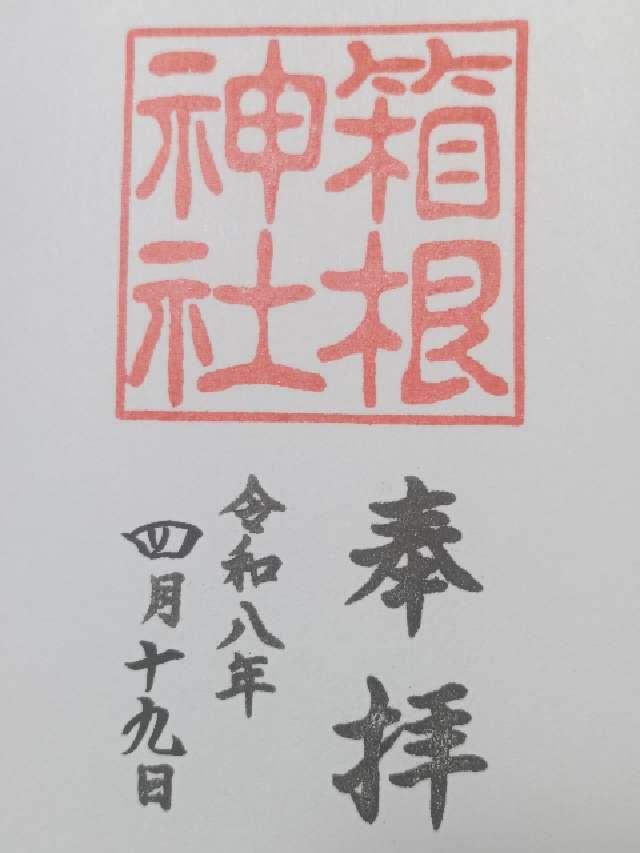 箱根
神社
奉拝
令和八年
四月十九日